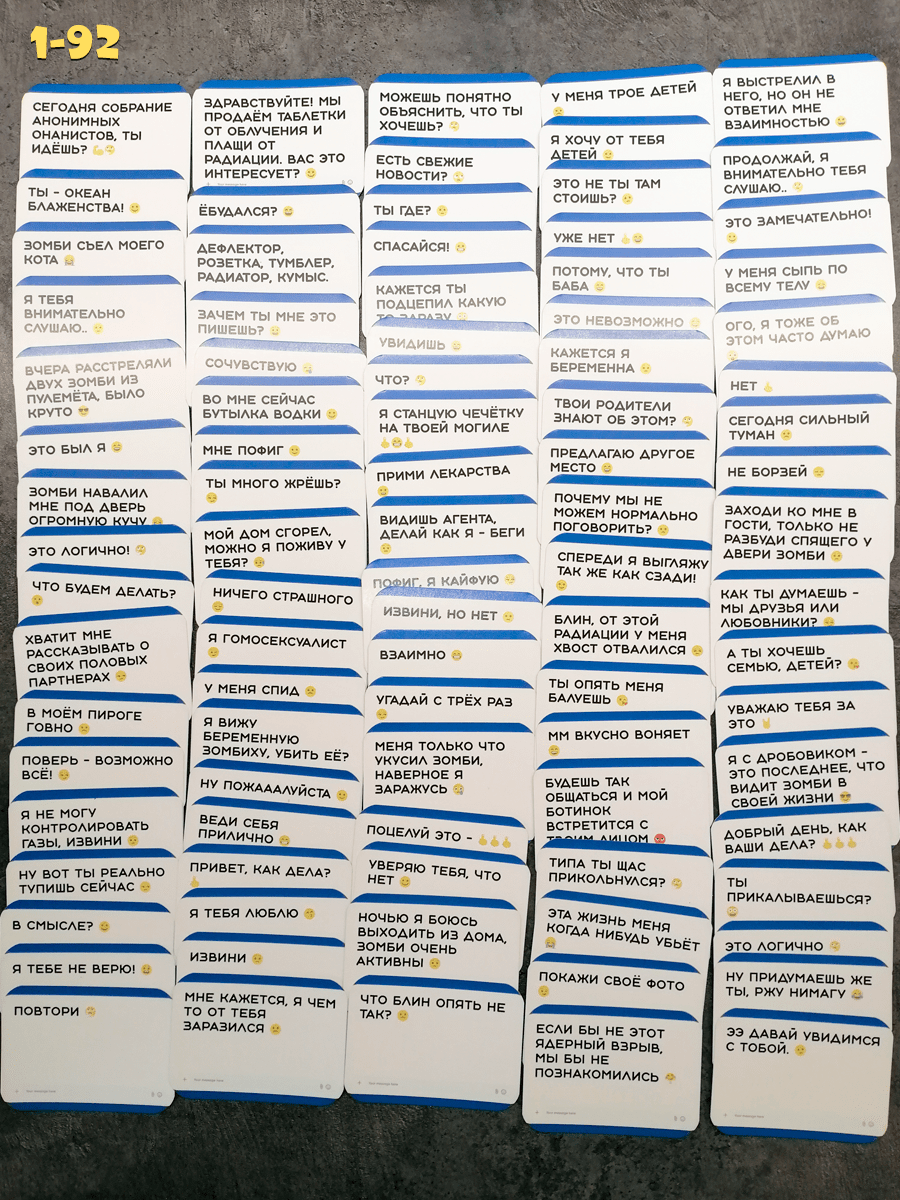 1-92
СЕГОДНЯ СОБРАНИЕ
АНОНИМНЫХ
ОНАНИСТОВ, ТЫ
ИДЁШЬ? 💪
ТЫ – ОКЕАН
БЛАЖЕНСТВА!
ЗОМБИ СЪЕЛ МОЕГО
КОТА
Я ТЕБЯ
ВНИМАТЕЛЬНО
СЛУШАЮ..
ВЧЕРА РАССТРЕЛЯЛИ
ДВУХ ЗОМБИ ИЗ
ПУЛЕМЁТА, БЫЛО
КРУТО
ЭТО БЫЛ Я
ЗОМБИ НАВАЛИЛ
МНЕ ПОД ДВЕРЬ
ОГРОМНУЮ КУЧУ
ЭТО ЛОГИЧНО!
ЧТО БУДЕМ ДЕЛАТЬ?
ХВАТИТ МНЕ
РАССКАЗЫВАТЬ О
СВОИХ ПОЛОВЫХ
ПАРТНЕРАХ
В МОЁМ ПИРОГЕ
ГОВНО
ПОВЕРЬ – ВОЗМОЖНО
ВСЁ!
Я НЕ МОГУ
КОНТРОЛИРОВАТЬ
ГАЗЫ, ИЗВИНИ
НУ ВОТ ТЫ РЕАЛЬНО
ТУПИШЬ СЕЙЧАС
В СМЫСЛЕ?
Я ТЕБЕ НЕ ВЕРЮ!
ПОВТОРИ
ЗДРАВСТВУЙТЕ! МЫ
ПРОДАЁМ ТАБЛЕТКИ
ОТ ОБЛУЧЕНИЯ И
ПЛАЩИ ОТ
РАДИАЦИИ. ВАС ЭТО
ИНТЕРЕСУЕТ?
ЁБУДАЛСЯ?
ДЕФЛЕКТОР,
РОЗЕТКА, ТУМБЛЕР,
РАДИАТОР, КУМЫС.
ЗАЧЕМ ТЫ МНЕ ЭТО
ПИШЕШЬ?
СОЧУВСТВУЮ
ВО МНЕ СЕЙЧАС
БУТЫЛКА ВОДКИ
МНЕ ПОФИГ
ТЫ МНОГО ЖРЁШЬ?
МОЙ ДОМ СГОРЕЛ,
МОЖНО Я ПОЖИВУ У
ТЕБЯ?
НИЧЕГО СТРАШНОГО
Я ГОМОСЕКСУАЛИСТ
У МЕНЯ СПИД
Я ВИЖУ
БЕРЕМЕННУЮ
ЗОМБИХУ, УБИТЬ ЕЁ?
НУ ПОЖАААЛУЙСТА
ВЕДИ СЕБЯ
ПРИЛИЧНО
ПРИВЕТ, КАК ДЕЛА?
Я ТЕБЯ ЛЮБЛЮ
ИЗВИНИ
МНЕ КАЖЕТСЯ, Я ЧЕМ
ТО ОТ ТЕБЯ
ЗАРАЗИЛСЯ
МОЖЕШЬ ПОНЯТНО
ОБЪЯСНИТЬ, ЧТО ТЫ
ХОЧЕШЬ?
ЕСТЬ СВЕЖИЕ
НОВОСТИ?
ТЫ ГДЕ?
СПАСАЙСЯ!
КАЖЕТСЯ ТЫ
ПОДЦЕПИЛ КАКУЮ
ТО ЗАРАЗУ
УВИДИШЬ
ЧТО?
Я СТАНЦУЮ ЧЕЧЁТКУ
НА ТВОЕЙ МОГИЛЕ
ПРИМИ ЛЕКАРСТВА
ВИДИШЬ АГЕНТА,
ДЕЛАЙ КАК Я – БЕГИ
ПОФИГ, Я КАЙФУЮ
ИЗВИНИ, НО НЕТ
ВЗАИМНО
УГАДАЙ С ТРЁХ РАЗ
МЕНЯ ТОЛЬКО ЧТО
УКУСИЛ ЗОМБИ,
НАВЕРНОЕ Я
ЗАРАЖУСЬ
ПОЦЕЛУЙ ЭТО –
УВЕРЯЮ ТЕБЯ, ЧТО
НЕТ
НОЧЬЮ Я БОЮСЬ
ВЫХОДИТЬ ИЗ ДОМА,
ЗОМБИ ОЧЕНЬ
АКТИВНЫ
ЧТО БЛИН ОПЯТЬ НЕ
ТАК?
У МЕНЯ ТРОЕ ДЕТЕЙ
Я ХОЧУ ОТ ТЕБЯ
ДЕТЕЙ
ЭТО НЕ ТЫ ТАМ
СТОИШЬ?
УЖЕ НЕТ
ПОТОМУ, ЧТО ТЫ
БАБА
ЭТО НЕВОЗМОЖНО
КАЖЕТСЯ Я
БЕРЕМЕННА
ТВОИ РОДИТЕЛИ
ЗНАЮТ ОБ ЭТОМ?
ПРЕДЛАГАЮ ДРУГОЕ
МЕСТО
ПОЧЕМУ МЫ НЕ
МОЖЕМ НОРМАЛЬНО
ПОГОВОРИТЬ?
СПЕРЕДИ Я ВЫГЛЯЖУ
ТАК ЖЕ КАК СЗАДИ!
БЛИН, ОТ ЭТОЙ
РАДИАЦИИ У МЕНЯ
ХВОСТ ОТВАЛИЛСЯ
ТЫ ОПЯТЬ МЕНЯ
БАЛУЕШЬ
ММ ВКУСНО ВОНЯЕТ
БУДЕШЬ ТАК
ОБЩАТЬСЯ И МОЙ
БОТИНОК
ВСТРЕТИТСЯ С
ТВОИМ ЛИЦОМ
ТИПА ТЫ ЩАС
ПРИКОЛЬНУЛСЯ?
ЭТА ЖИЗНЬ МЕНЯ
КОГДА НИБУДЬ УБЬЁТ
ПОКАЖИ СВОЁ ФОТО
ЕСЛИ БЫ НЕ ЭТОТ
ЯДЕРНЫЙ ВЗРЫВ,
МЫ БЫ НЕ
ПОЗНАКОМИЛИСЬ
Я ВЫСТРЕЛИЛ В
НЕГО, НО ОН НЕ
ОТВЕТИЛ МНЕ
ВЗАИМНОСТЬЮ
ПРОДОЛЖАЙ, Я
ВНИМАТЕЛЬНО ТЕБЯ
СЛУШАЮ..
ЭТО ЗАМЕЧАТЕЛЬНО!
У МЕНЯ СЫПЬ ПО
ВСЕМУ ТЕЛУ
ОГО, Я ТОЖЕ ОБ
ЭТОМ ЧАСТО ДУМАЮ
НЕТ
СЕГОДНЯ СИЛЬНЫЙ
ТУМАН
НЕ БОРЗЕЙ
ЗАХОДИ КО МНЕ В
ГОСТИ, ТОЛЬКО НЕ
РАЗБУДИ СПЯЩЕГО У
ДВЕРИ ЗОМБИ
КАК ТЫ ДУМАЕШЬ –
МЫ ДРУЗЬЯ ИЛИ
ЛЮБОВНИКИ?
А ТЫ ХОЧЕШЬ
СЕМЬЮ, ДЕТЕЙ?
УВАЖАЮ ТЕБЯ ЗА
ЭТО
Я С ДРОБОВИКОМ –
ЭТО ПОСЛЕДНЕЕ, ЧТО
ВИДИТ ЗОМБИ В
СВОЕЙ ЖИЗНИ
ДОБРЫЙ ДЕНЬ, КАК
ВАШИ ДЕЛА?
ТЫ
ПРИКАЛЫВАЕШЬСЯ?
ЭТО ЛОГИЧНО
НУ ПРИДУМАЕШЬ ЖЕ
ТЫ, РЖУ НИМАГУ
ЭЭ ДАВАЙ УВИДИМСЯ
С ТОБОЙ.